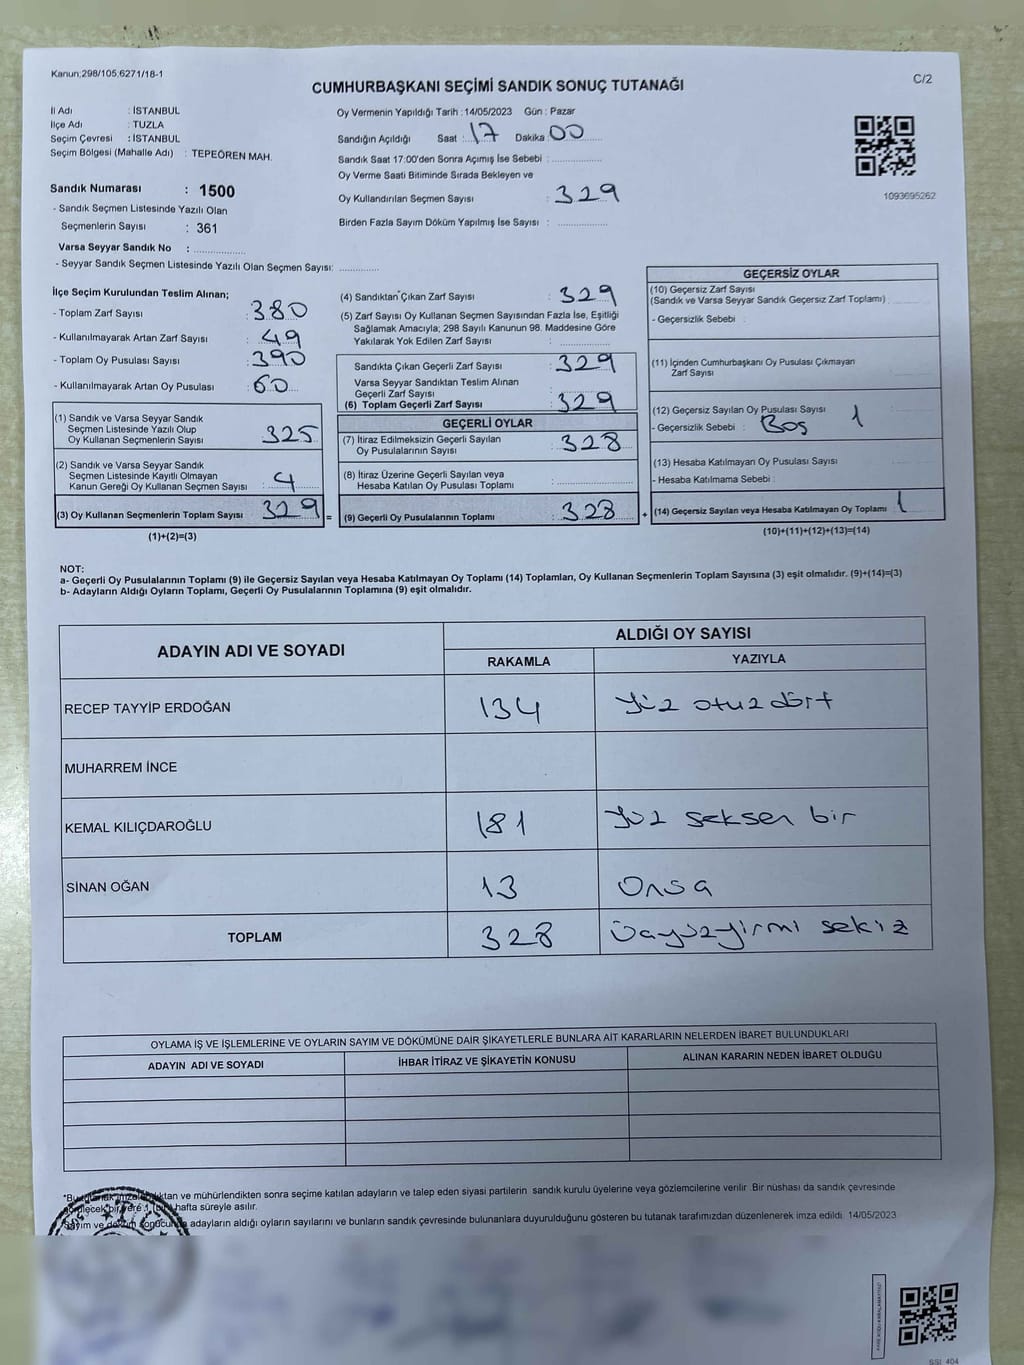 Kanun;298/105,6271/18-1
CUMHURBAŞKANI SEÇİMİ SANDIK SONUÇ TUTANAĞI
C/2
İl Adı : İSTANBUL
İlçe Adı : TUZLA
Seçim Çevresi : İSTANBUL
Seçim Bölgesi (Mahalle Adı) : TEPEÖREN MAH.
Oy Vermenin Yapıldığı Tarih : 14/05/2023 Gün : Pazar
Sandığın Açıldığı Saat : 17 Dakika 00
Sandık Saat 17:00'den Sonra Açımış İse Sebebi :
Oy Verme Saati Bitiminde Sırada Bekleyen ve
Oy Kullandırılan Seçmen Sayısı : 329
Birden Fazla Sayım Döküm Yapılmış İse Sayısı :
1093695262
Sandık Numarası : 1500
- Sandık Seçmen Listesinde Yazılı Olan
Seçmenlerin Sayısı : 361
Varsa Seyyar Sandık No :
- Seyyar Sandık Seçmen Listesinde Yazılı Olan Seçmen Sayısı:
İlçe Seçim Kurulundan Teslim Alınan;
- Toplam Zarf Sayısı : 380
- Kullanılmayarak Artan Zarf Sayısı : 49
- Toplam Oy Pusulası Sayısı : 390
- Kullanılmayarak Artan Oy Pusulası : 60
(1) Sandık ve Varsa Seyyar Sandık
Seçmen Listesinde Yazılı Olup
Oy Kullanan Seçmenlerin Sayısı : 325
(2) Sandık ve Varsa Seyyar Sandık
Seçmen Listesinde Kayıtlı Olmayan
Kanun Gereği Oy Kullanan Seçmen Sayısı : 4
(3) Oy Kullanan Seçmenlerin Toplam Sayısı : 329 =
(1)+(2)=(3)
(4) Sandıktan Çıkan Zarf Sayısı : 329
(5) Zarf Sayısı Oy Kullanan Seçmen Sayısından Fazla İse, Eşitliği
Sağlamak Amacıyla; 298 Sayılı Kanunun 98. Maddesine Göre
Yakılarak Yok Edilen Zarf Sayısı :
Sandıkta Çıkan Geçerli Zarf Sayısı : 329
Varsa Seyyar Sandıktan Teslim Alınan
Geçerli Zarf Sayısı :
(6) Toplam Geçerli Zarf Sayısı : 329
GEÇERLİ OYLAR
(7) İtiraz Edilmeksizin Geçerli Sayılan
Oy Pusulalarının Sayısı : 328
(8) İtiraz Üzerine Geçerli Sayılan veya
Hesaba Katılan Oy Pusulası Toplamı :
(9) Geçerli Oy Pusulalarının Toplamı : 328 +
GEÇERSİZ OYLAR
(10) Geçersiz Zarf Sayısı
(Sandık ve Varsa Seyyar Sandık Geçersiz Zarf Toplamı) :
- Geçersizlik Sebebi :
(11) İçinden Cumhurbaşkanı Oy Pusulası Çıkmayan
Zarf Sayısı :
(12) Geçersiz Sayılan Oy Pusulası Sayısı : 1
- Geçersizlik Sebebi : Boş
(13) Hesaba Katılmayan Oy Pusulası Sayısı :
- Hesaba Katılmama Sebebi :
(14) Geçersiz Sayılan veya Hesaba Katılmayan Oy Toplamı : 1
(10)+(11)+(12)+(13)=(14)
NOT:
a- Geçerli Oy Pusulalarının Toplamı (9) ile Geçersiz Sayılan veya Hesaba Katılmayan Oy Toplamı (14) Toplamları, Oy Kullanan Seçmenlerin Toplam Sayısına (3) eşit olmalıdır. (9)+(14)=(3)
b- Adayların Aldığı Oyların Toplamı, Geçerli Oy Pusulalarının Toplamına (9) eşit olmalıdır.
ADAYIN ADI VE SOYADI
ALDIĞI OY SAYISI
RAKAMLA YAZIYLA
RECEP TAYYİP ERDOĞAN 134 Yüz otuz dört
MUHARREM İNCE
KEMAL KILIÇDAROĞLU 181 Yüz seksen bir
SİNAN OĞAN 13 Onüç
TOPLAM 328 Üçyüzyirmi sekiz
OYLAMA İŞ VE İŞLEMLERİNE VE OYLARIN SAYIM VE DÖKÜMÜNE DAİR ŞİKAYETLERLE BUNLARA AİT KARARLARIN NELERDEN İBARET BULUNDUKLARI
ADAYIN ADI VE SOYADI İHBAR İTİRAZ VE ŞİKAYETİN KONUSU ALINAN KARARIN NEDEN İBARET OLDUĞU
*Bu tutanak imzalandıktan ve mühürlendikten sonra seçime katılan adayların ve talep eden siyasi partilerin sandık kurulu üyelerine veya gözlemcilerine verilir. Bir nüshası da sandık çevresinde
görülecek bir yere 1 (bir) hafta süreyle asılır.
Sayım ve döküm sonucunda adayların aldığı oyların sayılarını ve bunların sandık çevresinde bulunanlara duyurulduğunu gösteren bu tutanak tarafımızdan düzenlenerek imza edildi. 14/05/2023